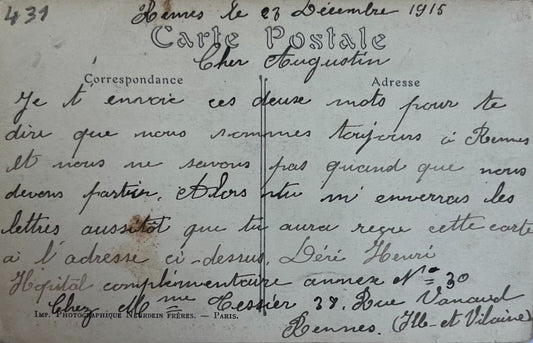 431
Rennes le 23 Décembre 1915
Carte Postale
Cher Augustin
Correspondance
Adresse
Je t'envoie ces deux mots pour te
dire que nous sommes toujours à Rennes
et nous ne savons pas quand que nous
devons partir. Alors tu m'enverras les
lettres aussitôt que tu aura reçu cette carte
a l'adresse ci-dessus. Déré Henri
Hopital complémentaire annexe N° 30
Chez Mme Tessier 38. Rue Vanaud
IMP. PHOTOGRAPHIQUE NEURDEIN FRÈRES. — PARIS.
Rennes. (Ille-et Vilaine)